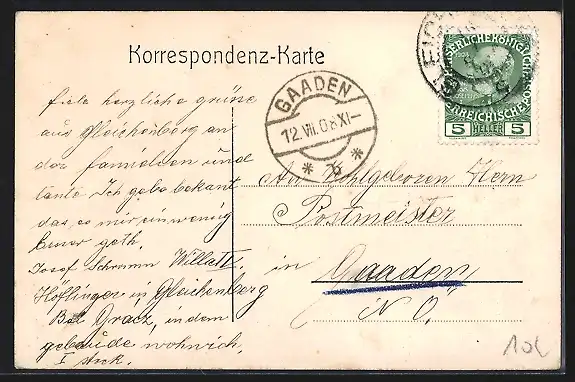 Korrespondenz-Karte
GAADEN
12.VII.08.XI-
* b *
KAISERLICHE KÖNIGLICHE
ÖSTERREICHISCHE
5 HELLER 5
GLEICH
fiele herzliche grüse
aus Gleichenberg an
der familien und
tante Ich gebe bekant
das es mir ein wenig
beser geth.
Josef Schramm Willa IV.
Höflinger in Gleichenberg
Bei Graz, in dem
gebeude wohn ich,
I stock.
An Wohlgeboren Hern
Postmeister
in Gaaden
N. Ö.
10L